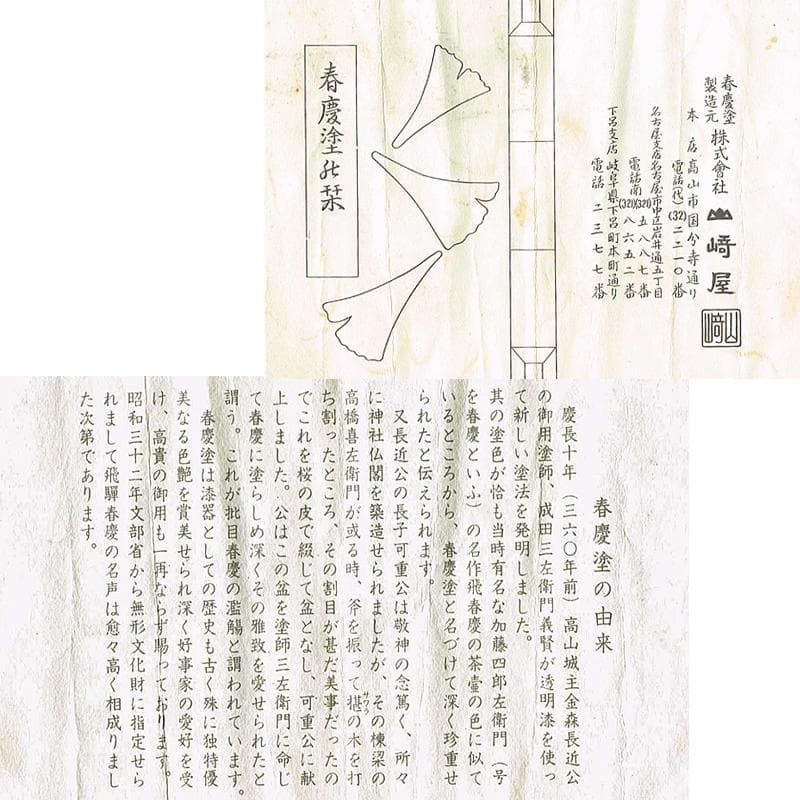 春慶塗
製造元
株式會社
山崎屋
本店 高山市国分寺通り
電話(代)(32)二二一〇番
名古屋支店 名古屋市中区岩井通五丁目
電話南(32)五八八七番
(32)八六五二番
下呂支店 岐阜県下呂町本町通り
電話 二三七七番
春慶塗の栞
春慶塗の由来
慶長十年(三六〇年前)高山城主金森長近公
の御用塗師、成田三左衛門義賢が透明漆を使っ
て新しい塗法を発明しました。
其の塗色が恰も当時有名な加藤四郎左衛門(号
を春慶といふ)の名作飛春慶の茶壷の色に似て
いるところから、春慶塗と名づけて深く珍重せ
られたと伝えられます。
又長近公の長子可重公は敬神の念篤く、所々
に神社仏閣を築造せられましたが、その棟梁の
高橋喜左衛門が或る時、斧を振って椹の木を打
サワラ
ち割ったところ、その割目が甚だ美事だったの
でこれを桜の皮で綴じて盆となし、可重公に献
上しました。公はこの盆を塗師三左衛門に命じ
て春慶に塗らしめ深くその雅致を愛せられたと
謂う。これが批目春慶の濫觴と謂われています。
春慶塗は漆器としての歴史も古く殊に独特優
美なる色艶を賞美せられ深く好事家の愛好を受
け、高貴の御用も一再ならず賜っております。
昭和三十二年文部省から無形文化財に指定せら
れまして飛騨春慶の名声は愈々高く相成りまし
た次第であります。